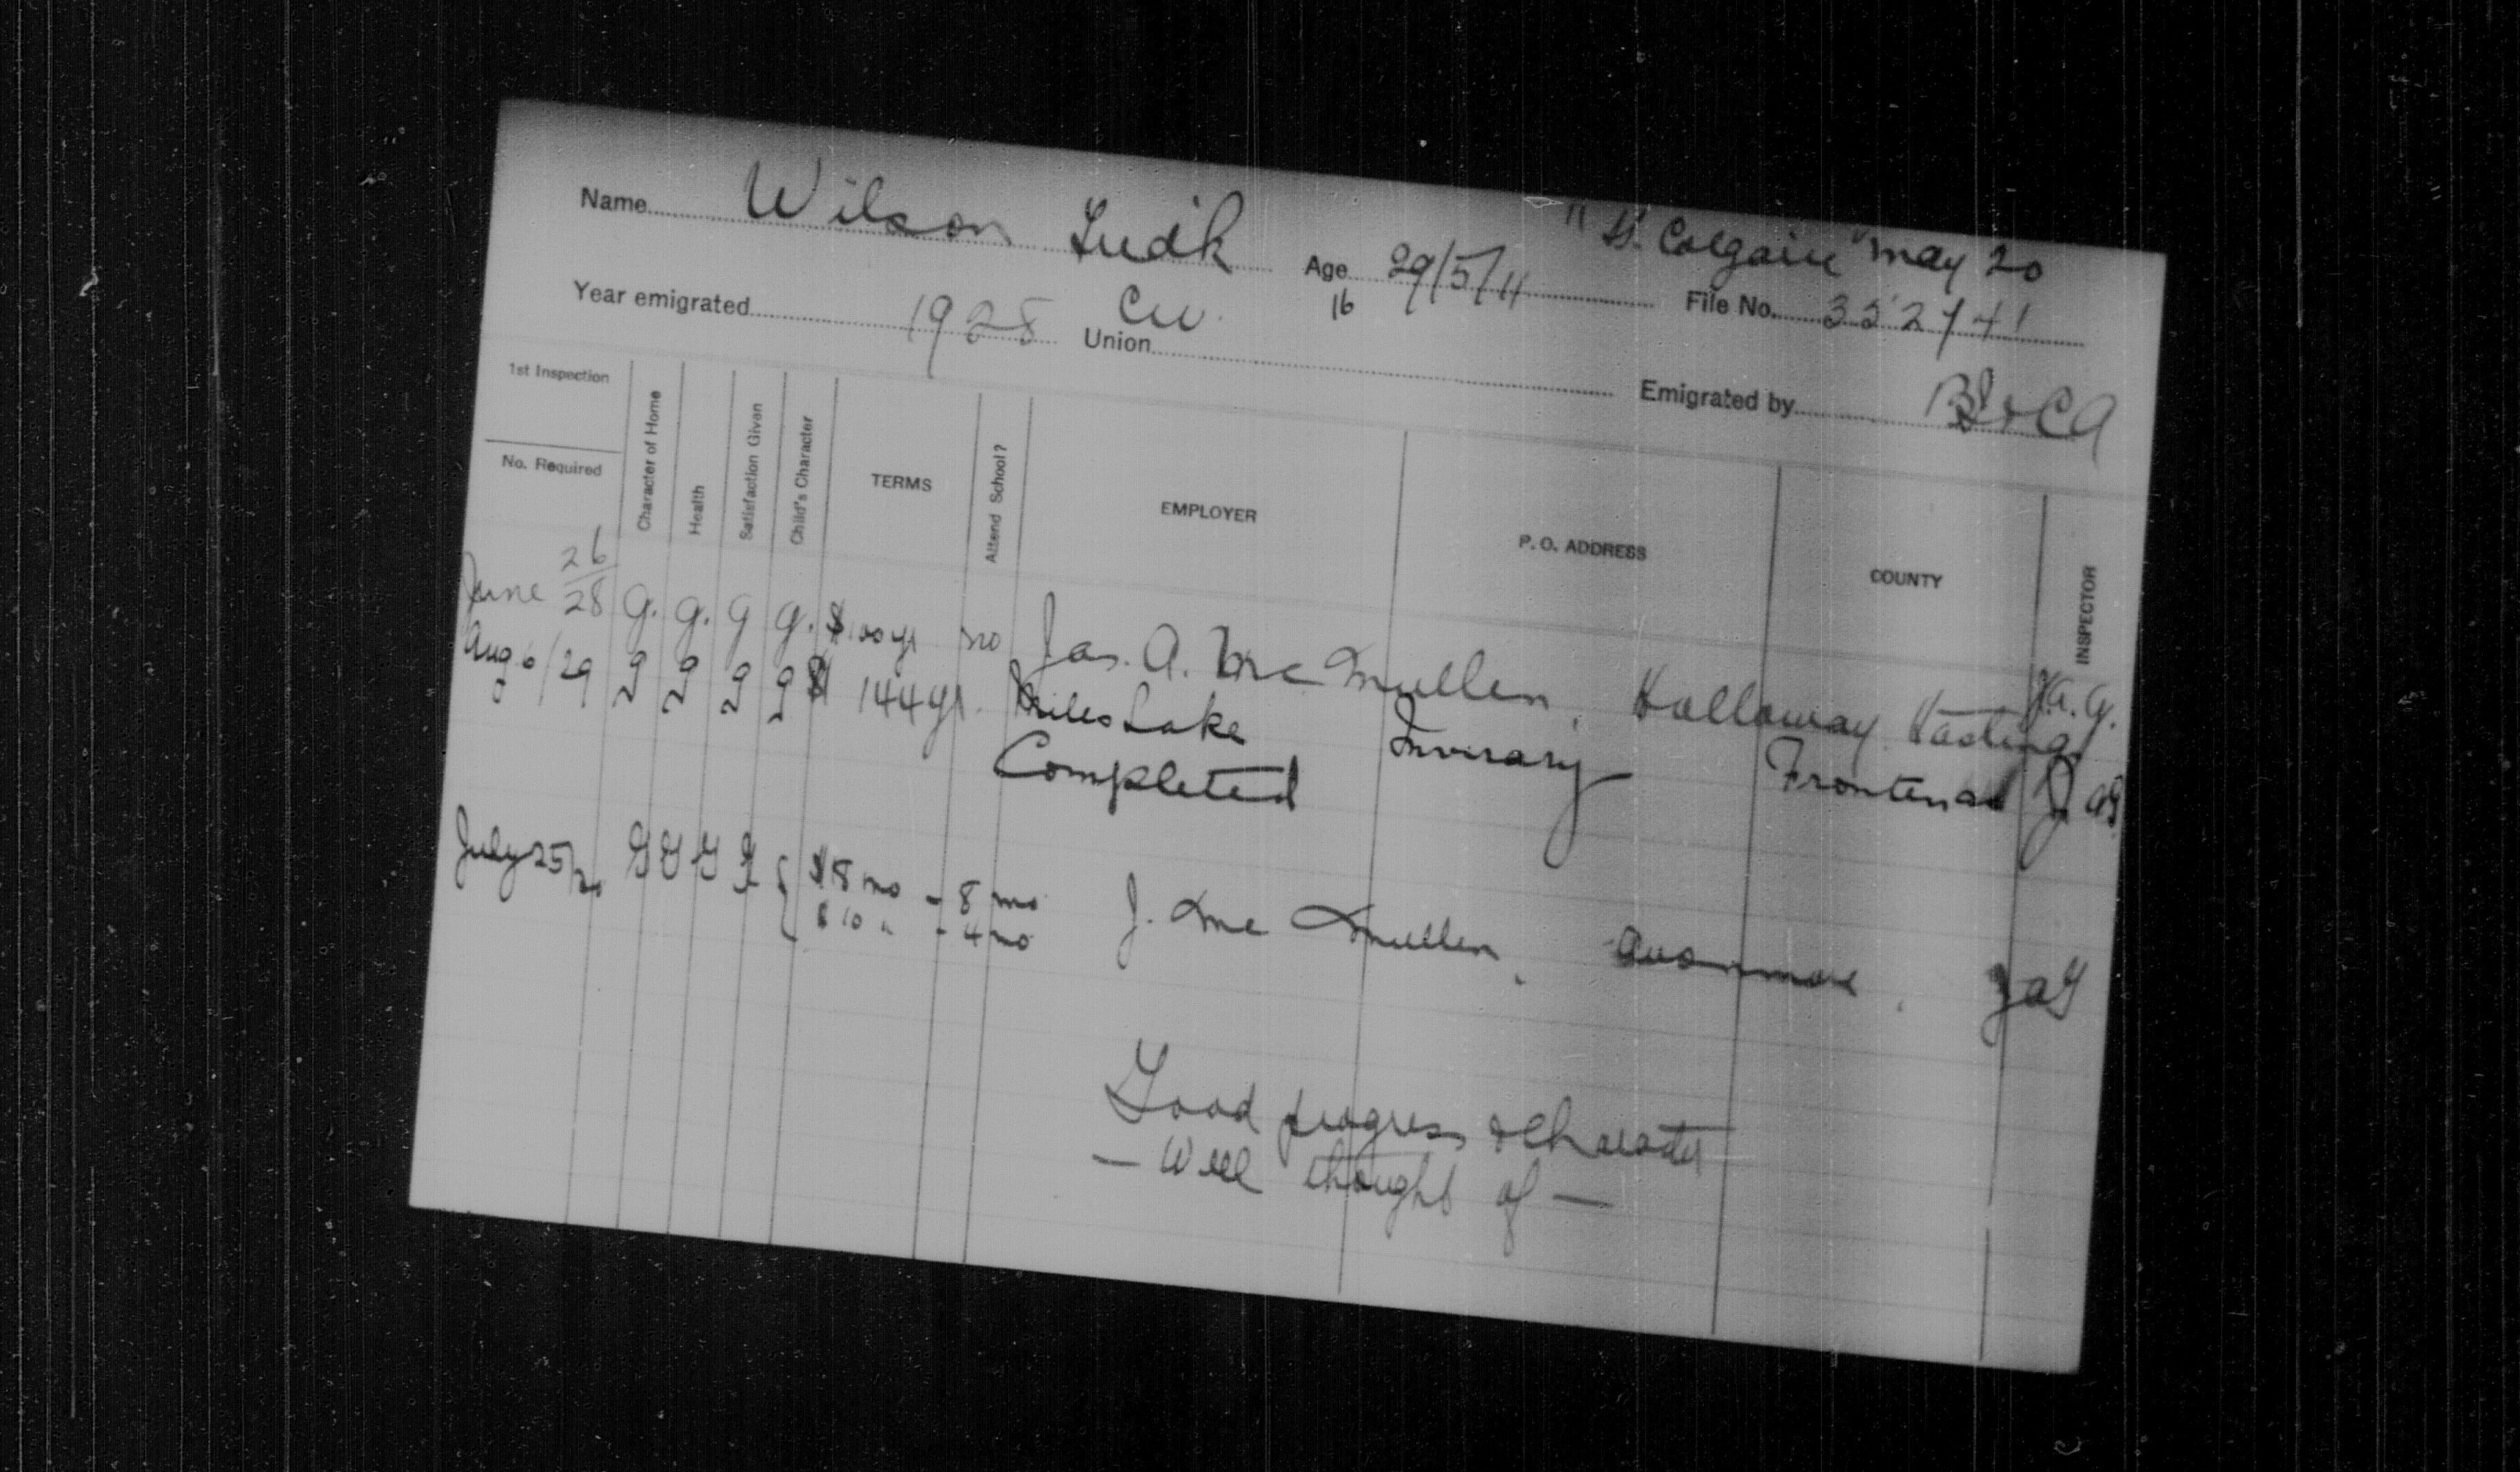 "St. Colgain" May 20
Name Wilson Fredk Age 29/5/11 File No. 352741
16
Year emigrated 1928 CW. Union Emigrated by BI & CA
1st Inspection
No. Required
Character of Home
Health
Satisfaction Given
Child's Character
TERMS
Attend School?
EMPLOYER
P. O. ADDRESS
COUNTY
INSPECTOR
June 26/28 g. g. g g. $100 yr no Jas. A. McMullen, Holloway Hastings J.A.G.
Aug 6/29 g g g g $144 yr. Miles Lake Inverary Frontenac JAG
Completed
July 25/30 G G G G { $8 mo - 8 mo J. McMullen, Avonmore, JAG
$10 " - 4 mo
Good progress & Character
— Well thought of —